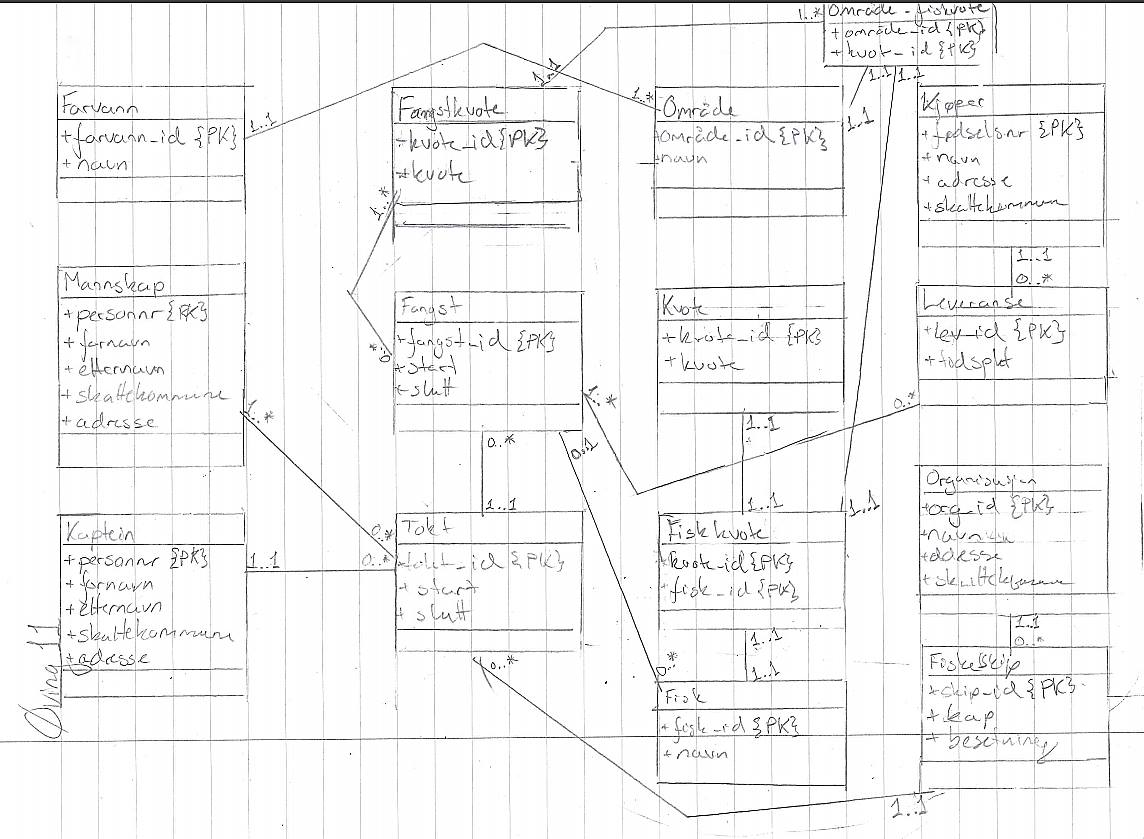 Område_fiskvote
+område_id{PK}
+kvot_id{PK}
1..*
1..1
1..1
1..1
Farvann
+farvann_id {PK}
+navn
1..1
Fangstkvote
+kvote_id{PK}
+kvote
1..1
1..*
Område
område_id{PK}
+navn
1..*
1..1
Kipper
+fødselsnr {PK}
+navn
+adresse
+skattekommun
1..1
0..*
Mannskap
+personnr{PK}
+fornavn
+etternavn
+skattekommune
+adresse
1..*
Fangst
+fangst_id {PK}
+start
+slutt
1..*
0..*
0..1
1..1
Kvote
+kvote_id {PK}
+kvote
1..1
1..1
Leveranse
+lev_id {PK}
+tidspkt
0..*
Kaptein
+personnr {PK}
+fornavn
+etternavn
+skattekommune
+adresse
1..1
Tokt
+tokt_id {PK}
+start
+slutt
0..*
0..*
0..*
Fiskkvote
+kvote_id{PK}
+fisk_id{PK}
1..1
1..1
1..1
Organisasjon
+org_id {PK}
+navn
+adresse
1..1
0..*
Fisk
+fisk_id{PK}
+navn
0..*
FiskeSkip
+skip_id{PK}
+kap
+besetning
1..1
Øving 11